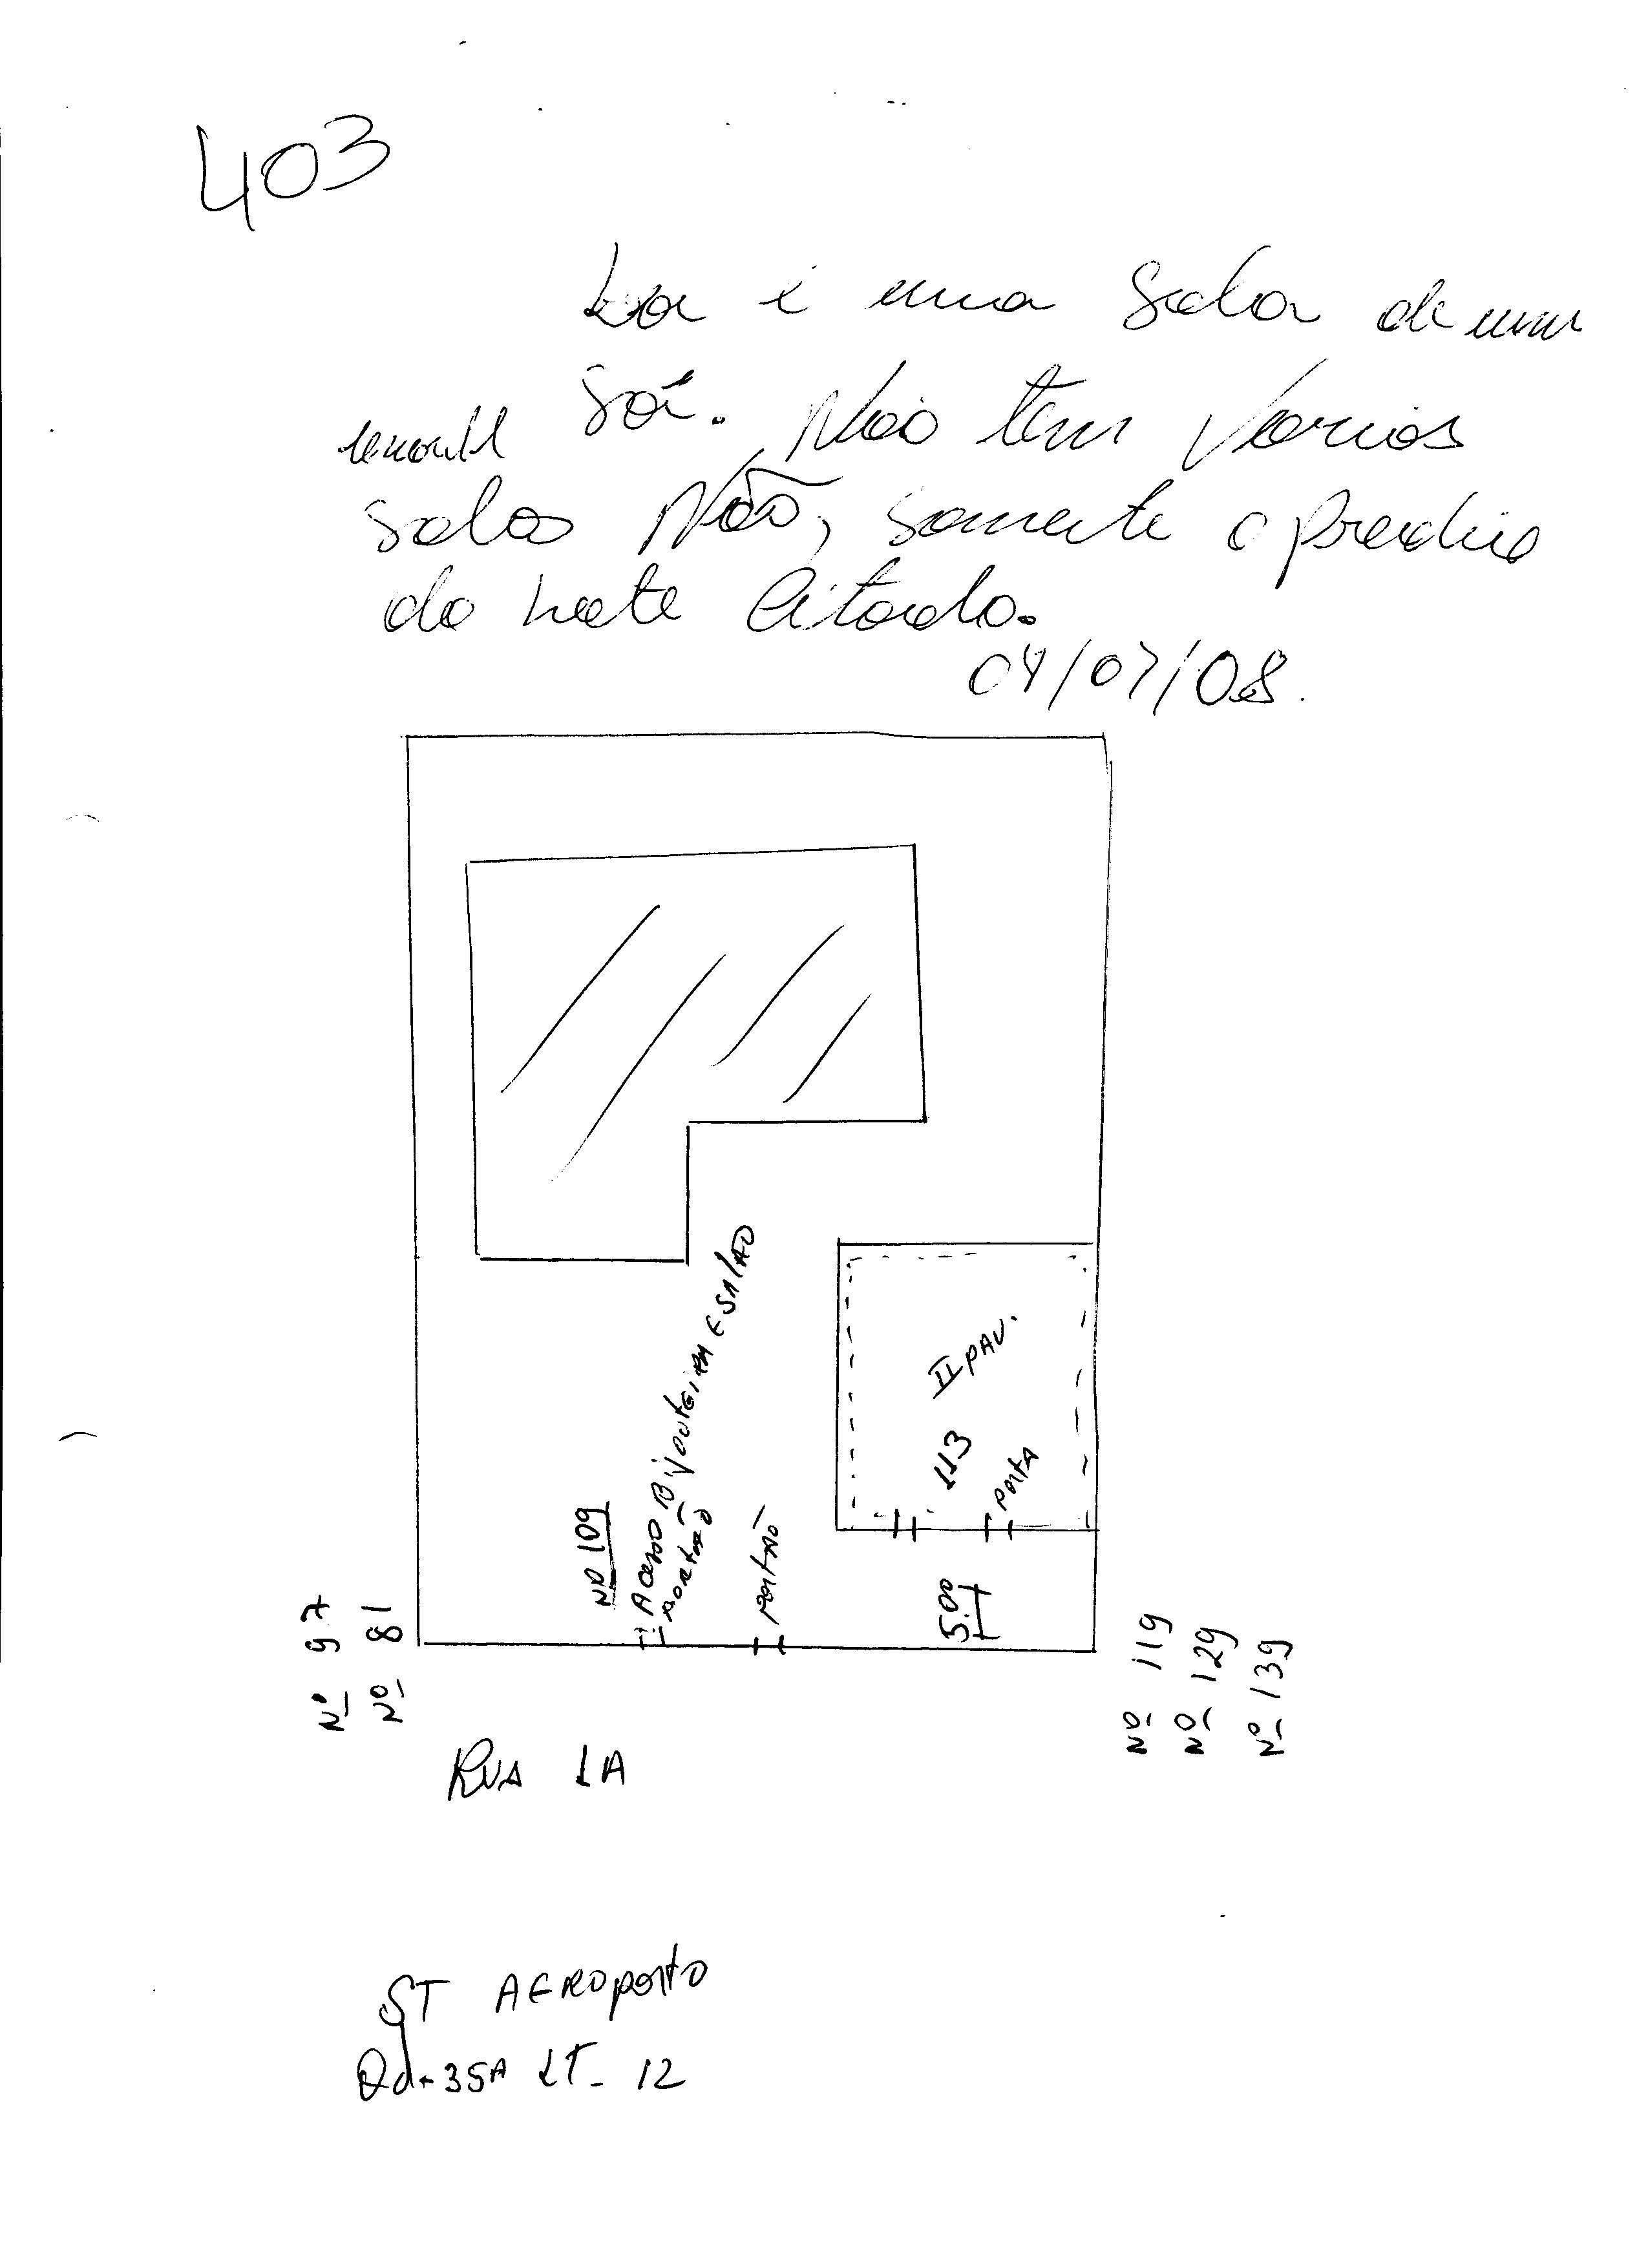 403
Lá é uma sala de um
só. Não tem varias
salas Não, somente o predio
do lote Citado.
04/07/08.
II PAV.
113
PORTA
Nº 109
Acesso Bijouteria E SALÃO
PORTÃO
PORTÃO
5.00
Nº 97
Nº 81
Nº 119
Nº 129
Nº 139
RUA 1A
ST AEROPORTO
Qd. 35A LT- 12